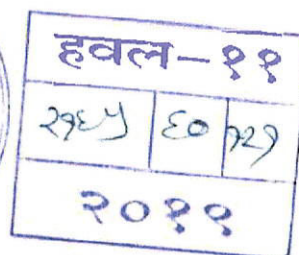 हवल-११
२१६५ ६० १२१
२०१९